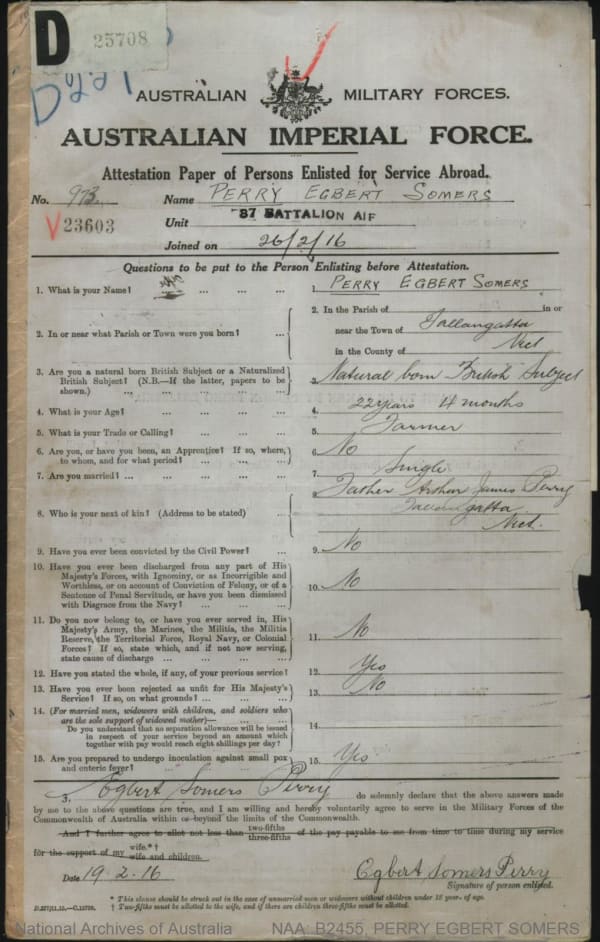 D 25708
D221
AUSTRALIAN MILITARY FORCES.
AUSTRALIAN IMPERIAL FORCE.
Attestation Paper of Persons Enlisted for Service Abroad.
No. 973 Name PERRY EGBERT SOMERS
V 23603 Unit 37 BATTALION AIF
Joined on 26/2/16
Questions to be put to the Person Enlisting before Attestation.
1. What is your Name? ... ... ... 1 PERRY EGBERT SOMERS
2. In or near what Parish or Town were you born? ... 2. In the Parish of in or
near the Town of Tallangatta
in the County of Vict
3. Are you a natural born British Subject or a Naturalized
British Subject? (N.B.—If the latter, papers to be
shown.) ... ... ... ... 3. Natural born British Subject
4. What is your Age? ... ... ... 4. 22 years 4 months
5. What is your Trade or Calling? ... ... ... 5. Farmer
6. Are you, or have you been, an Apprentice? If so, where,
to whom, and for what period? ... ... ... 6. No
7. Are you married? ... ... ... ... 7. Single
8. Who is your next of kin? (Address to be stated) ... 8 Father Arthur James Perry
Tallangatta
Vict.
9. Have you ever been convicted by the Civil Power? ... 9. No
10. Have you ever been discharged from any part of His
Majesty's Forces, with Ignominy, or as Incorrigible and
Worthless, or on account of Conviction of Felony, or of a
Sentence of Penal Servitude, or have you been dismissed
with Disgrace from the Navy? ... ... ... 10. No
11. Do you now belong to, or have you ever served in, His
Majesty's Army, the Marines, the Militia, the Militia
Reserve, the Territorial Force, Royal Navy, or Colonial
Forces? If so, state which, and if not now serving,
state cause of discharge ... ... ... ... 11. No
12. Have you stated the whole, if any, of your previous service? 12. Yes
13. Have you ever been rejected as unfit for His Majesty's
Service? If so, on what grounds? ... ... ... 13. No
14. (For married men, widowers with children, and soldiers who
are the sole support of widowed mother)— ... ...
Do you understand that no separation allowance will be issued
in respect of your service beyond an amount which
together with pay would reach eight shillings per day? 14.
15. Are you prepared to undergo inoculation against small pox
and enteric fever? ... ... ... ... 15. Yes
3. Egbert Somers Perry do solemnly declare that the above answers made
by me to the above questions are true, and I am willing and hereby voluntarily agree to serve in the Military Forces of the
Commonwealth of Australia within or beyond the limits of the Commonwealth.
And I further agree to allot not less than two-fifths three-fifths of the pay payable to me from time to time during my service
for the support of my wife.*† wife and children.
Date 19.2.16 Egbert Somers Perry
Signature of person enlisted.
* This clause should be struck out in the case of unmarried men or widowers without children under 18 years of age.
D.227/11.15.—C.13726. † Two-fifths must be allotted to the wife, and if there are children three-fifths must be allotted.
National Archives of Australia NAA: B2455, PERRY EGBERT SOMERS